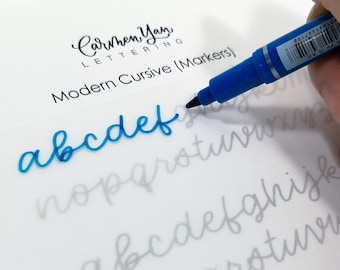 Carmen Yaz
LETTERING
Modern Cursive (Markers)
abcdefghijklm
nopqrstuvwxyz
abcdefghijk
nopqrstuvw